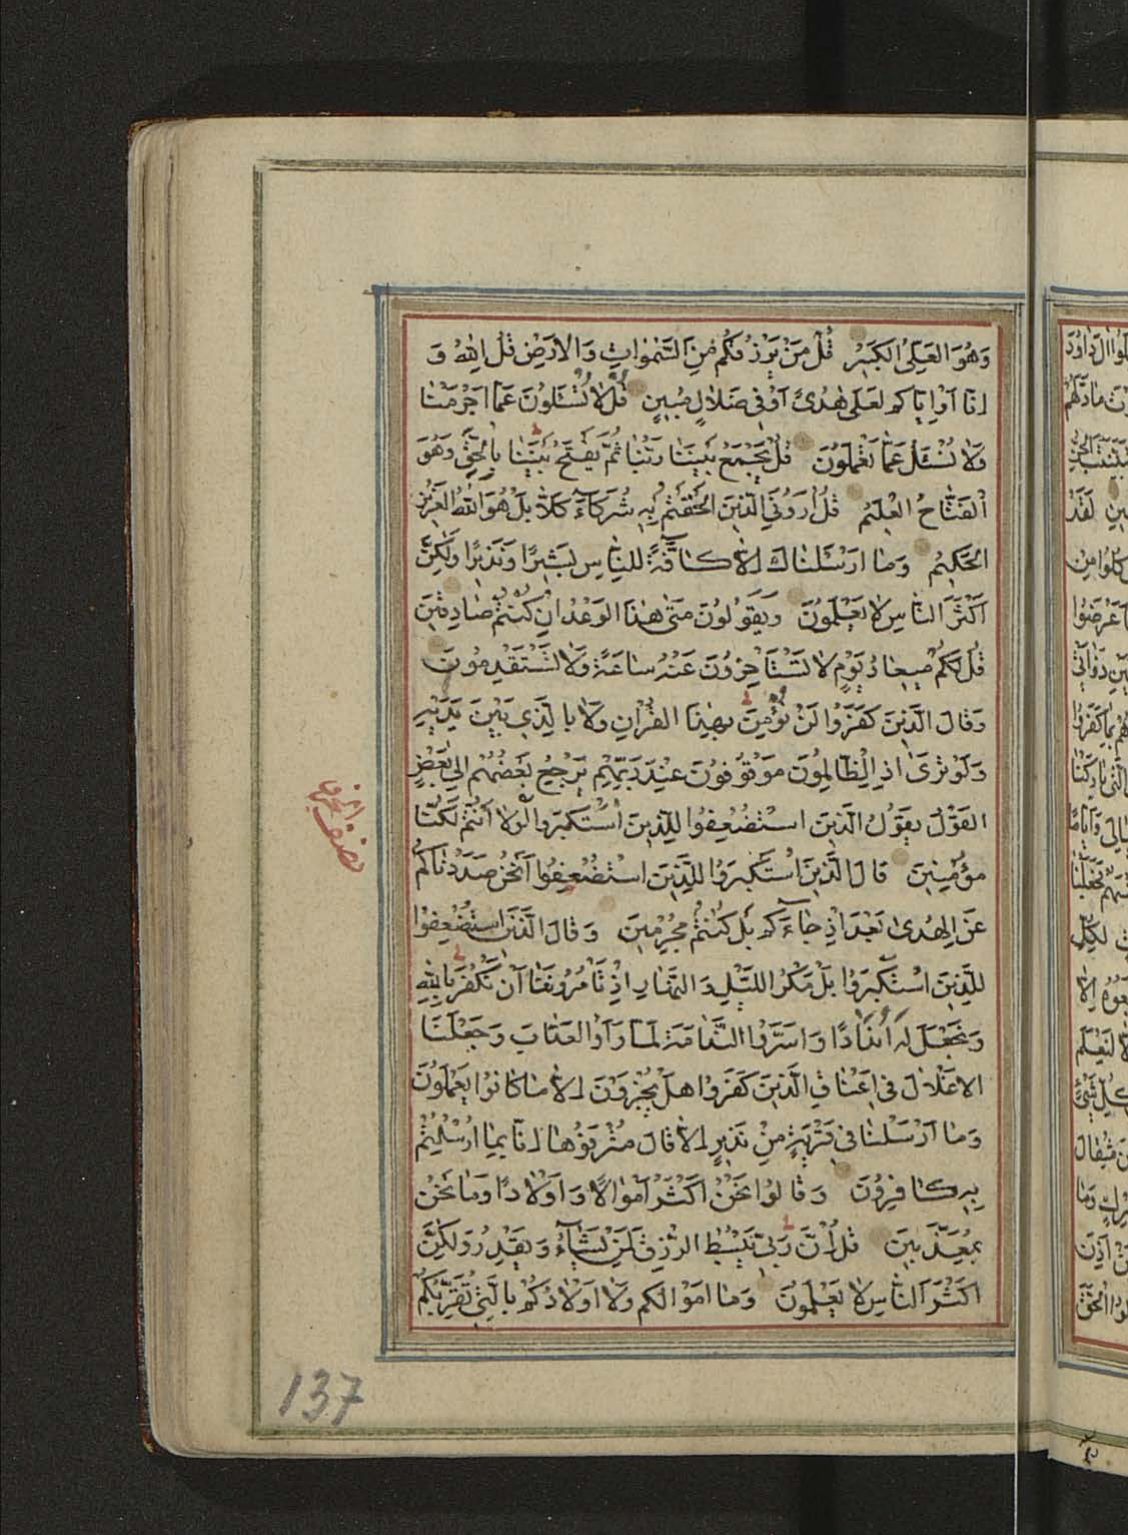 وَهُوَ العَلِىُّ الكَبِيرُ قُلْ مَنْ يَرْزُقُكُم مِنَ السَّمٰوَاتِ وَالاَرْضِ قُلِ اللهُ وَ
اِنَّا اَوْ اِيَّاكُم لَعَلَى هُدًى اَوْ فِى ضَلَالٍ مُبِينٍ قُلْ لَا تُسْئَلُونَ عَمَّا اَجْرَمْنَا
وَلَا نُسْئَلُ عَمَّا تَعْمَلُونَ قُلْ يَجْمَعُ بَيْنَنَا رَبُّنَا ثُمَّ يَفْتَحُ بَيْنَنَا بِالْحَقِّ وَهُوَ
الفَتَّاحُ العَلِيمُ قُلْ اَرُونِىَ الَّذِينَ اَلْحَقْتُمْ بِهِ شُرَكَآءَ كَلَّا بَلْ هُوَ اللهُ العَزِيزُ
الحَكِيمُ وَمَا اَرْسَلْنَاكَ اِلَّا كَآفَّةً لِلنَّاسِ بَشِيرًا وَنَذِيرًا وَلٰكِنَّ
اَكْثَرَ النَّاسِ لَا يَعْلَمُونَ وَيَقُولُونَ مَتَى هٰذَا الوَعْدُ اِنْ كُنْتُمْ صَادِقِينَ
قُلْ لَكُمْ مِيعَادُ يَوْمٍ لَا تَسْتَأْخِرُونَ عَنْهُ سَاعَةً وَلَا تَسْتَقْدِمُونَ
وَقَالَ الَّذِينَ كَفَرُوا لَنْ نُؤْمِنَ بِهٰذَا القُرْاٰنِ وَلَا بِالَّذِى بَيْنَ يَدَيْهِ
وَلَوْ تَرٰى اِذِ الظَّالِمُونَ مَوْقُوفُونَ عِنْدَ رَبِّهِمْ يَرْجِعُ بَعْضُهُمْ اِلٰى بَعْضٍ
القَوْلَ يَقُولُ الَّذِينَ اسْتُضْعِفُوا لِلَّذِينَ اسْتَكْبَرُوا لَوْلَا اَنْتُمْ لَكُنَّا
مُؤْمِنِينَ قَالَ الَّذِينَ اسْتَكْبَرُوا لِلَّذِينَ اسْتُضْعِفُوا اَنَحْنُ صَدَدْنَاكُمْ
عَنِ الهُدٰى بَعْدَ اِذْ جَآءَكُم بَلْ كُنْتُمْ مُجْرِمِينَ وَقَالَ الَّذِينَ اسْتُضْعِفُوا
لِلَّذِينَ اسْتَكْبَرُوا بَلْ مَكْرُ اللَّيْلِ وَالنَّهَارِ اِذْ تَأْمُرُونَنَا اَنْ نَكْفُرَ بِاللهِ
وَنَجْعَلَ لَهُ اَنْدَادًا وَاَسَرُّوا النَّدَامَةَ لَمَّا رَاَوُا العَذَابَ وَجَعَلْنَا
الاَغْلَالَ فِى اَعْنَاقِ الَّذِينَ كَفَرُوا هَلْ يُجْزَوْنَ اِلَّا مَا كَانُوا يَعْمَلُونَ
وَمَا اَرْسَلْنَا فِى قَرْيَةٍ مِنْ نَذِيرٍ اِلَّا قَالَ مُتْرَفُوهَا اِنَّا بِمَا اُرْسِلْتُمْ
بِهِ كَافِرُونَ وَقَالُوا نَحْنُ اَكْثَرُ اَمْوَالًا وَاَوْلَادًا وَمَا نَحْنُ
بِمُعَذَّبِينَ قُلْ اِنَّ رَبِّى يَبْسُطُ الرِّزْقَ لِمَنْ يَشَآءُ وَيَقْدِرُ وَلٰكِنَّ
اَكْثَرَ النَّاسِ لَا يَعْلَمُونَ وَمَا اَمْوَالُكُم وَلَا اَوْلَادُكُمْ بِالَّتِى تُقَرِّبُكُمْ
نصف
137